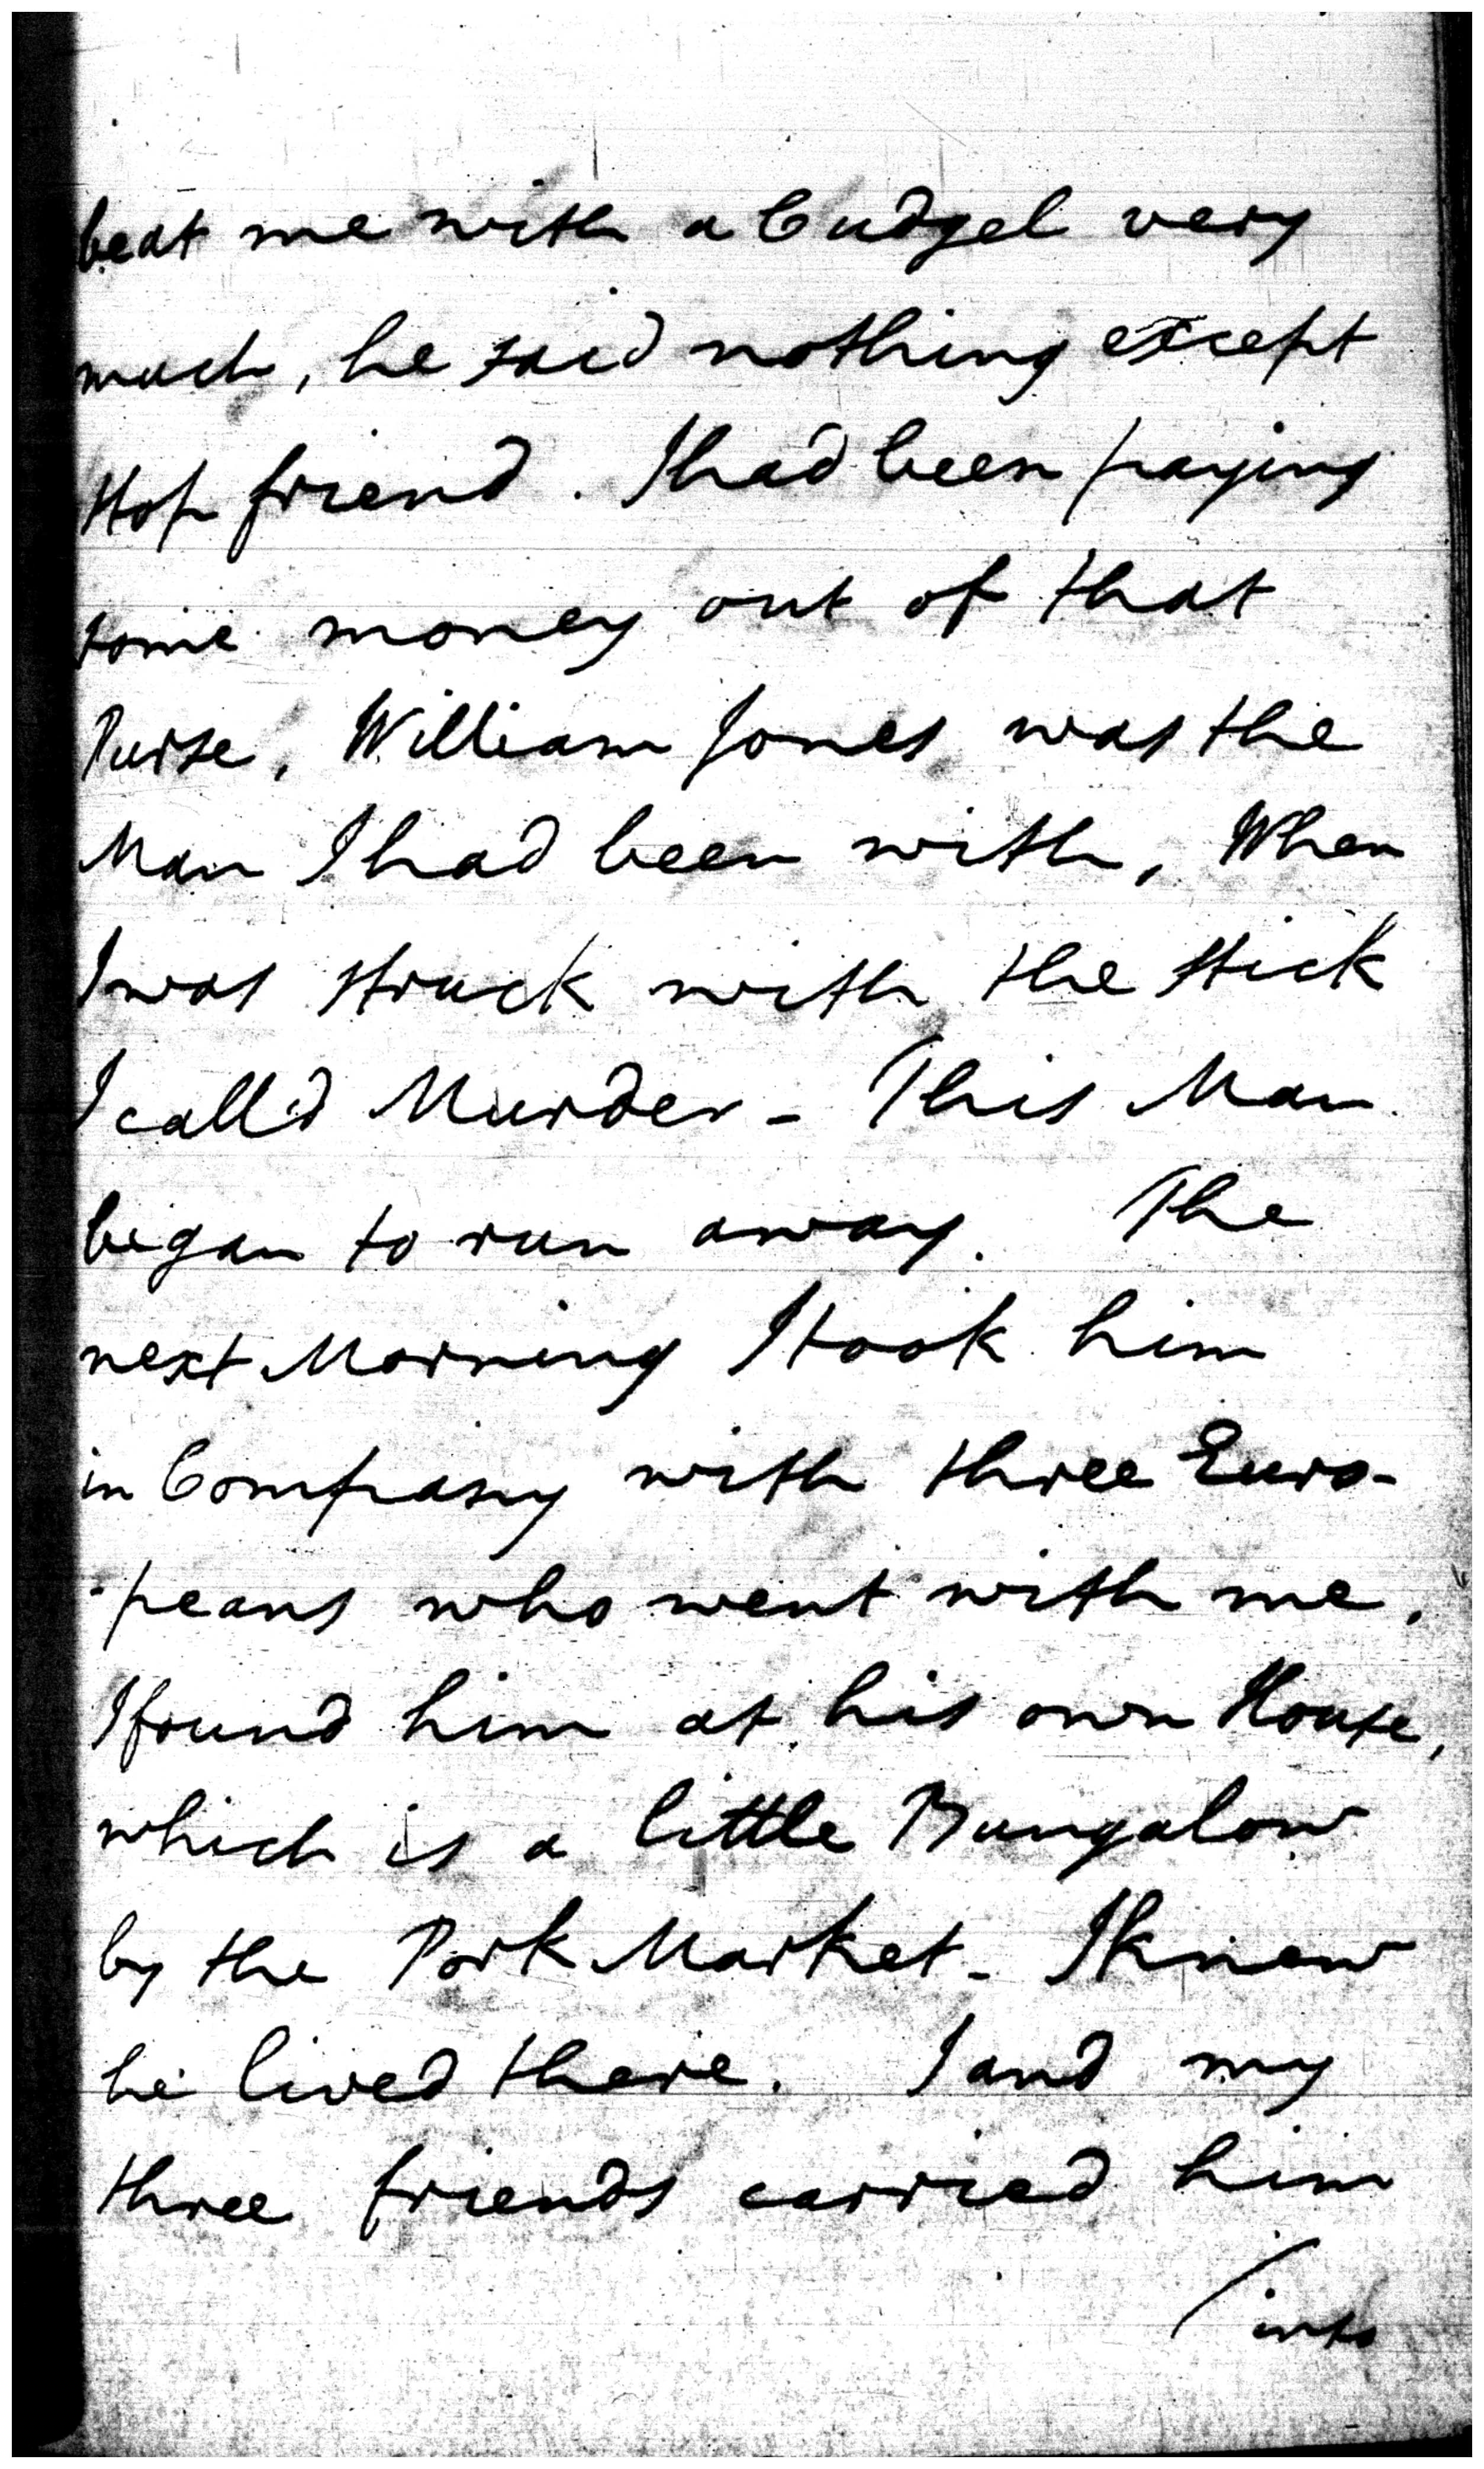 beat me with a Cudgel very
much, he said nothing except
stop friend. I had been paying
some money out of that
Purse, William Jones was the
Man I had been with, When
I was struck with the stick
I call'd Murder - This Man
began to run away. The
next Morning I took him
in Company with three Euro-
-peans who went with me.
I found him at his own House,
which is a little Bungalow
by the Pork Market - I knew
he lived there. I and my
three friends carried him
/into